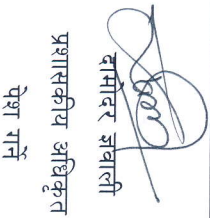 दामोदर ज्ञवाली
प्रशासकीय अधिकृत
पेश गर्ने